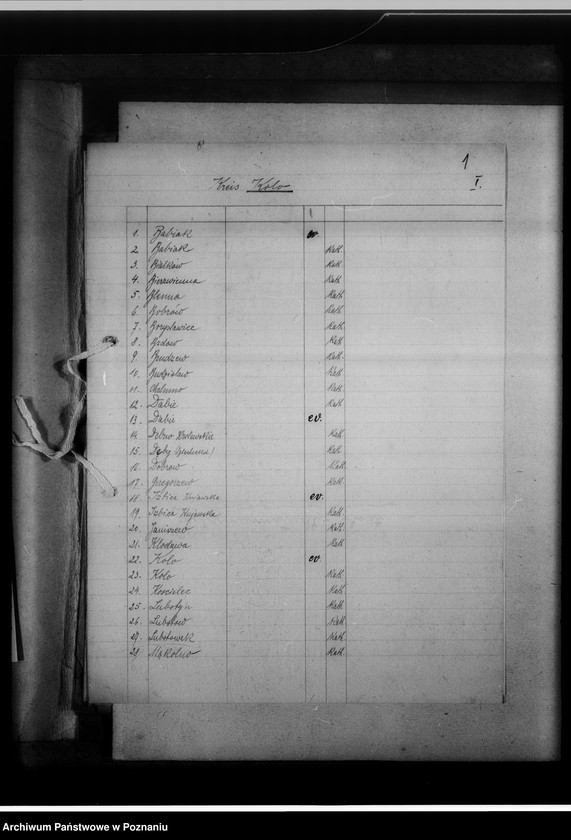 1
Kreis Kolo I.
1. Babiak ev.
2. Babiak Kath.
3. Białków Kath.
4. Bierzwienna Kath.
5. Blenna Kath.
6. Bobrow Kath.
7. Borysławice Kath.
8. Kath.
9. Brudzew Kath.
10. Budzisław Kath.
11. Chełmno Kath.
12. Dabie Kath.
13. Dabie ev.
14. Kath.
15. Kath.
16. Dobrow Kath.
17. Grzegorzew Kath.
18. Izbica Kujawska ev.
19. Izbica Kujawska Kath.
20. Janiszew Kath.
21. Kłodawa Kath.
22. Kolo ev.
23. Kolo Kath.
24. Koscielec Kath.
25. Lubotyn Kath.
26. Lubstow Kath.
27. Kath.
28. Mąkolno Kath.
Archiwum Państwowe w Poznaniu